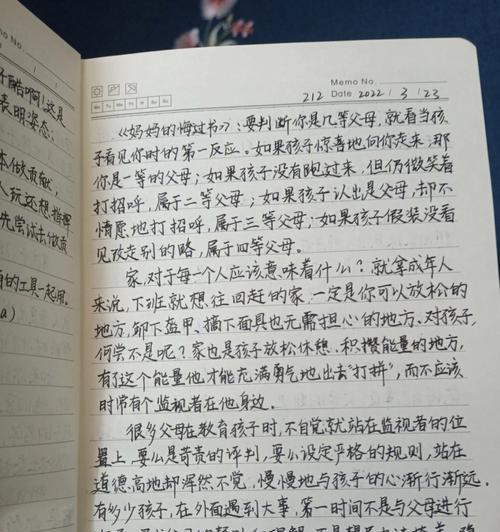 No.
酷啊！这是
表明姿态；
本做贡献，
人玩还想指挥
先尝试去做贡
的工具一起用。
a)
Memo No.
212 Date 2022 / 3 / 23
Mo Tu We Th Fr Sa Su
《妈妈的悔过书》：要判断你是几等父母，就看当孩
子看见你时的第一反应。如果孩子惊喜地向你走来，那
你是一等的父母；如果孩子没有跑过来，但仍微笑着
打招呼，属于二等父母；如果孩子认出是父母，却不
情愿地打招呼，属于三等父母；如果孩子假装没看
见改走别的路，属于四等父母。
家，对于每一个人应该意味着什么？就拿成年人
来说，下班就想往回赶的家，一定是你可以放松的
地方，卸下盔甲、摘下面具也无需担心的地方。对孩子，
何尝不是呢？家也是孩子放松休憩、积攒能量的地方，
有了这个能量他才能充满勇气地出去“打拼”，而不应该
时常有个监视者在他身边。
很多父母在教育孩子时，不自觉就站在监视者的位
置上，要么是苛责的评判，要么设定严格的规则，站在
道德高地却浑然不觉，慢慢地与孩子的心渐行渐远。
有多少孩子，在外面遇到大事，第一时间不是与父母进行